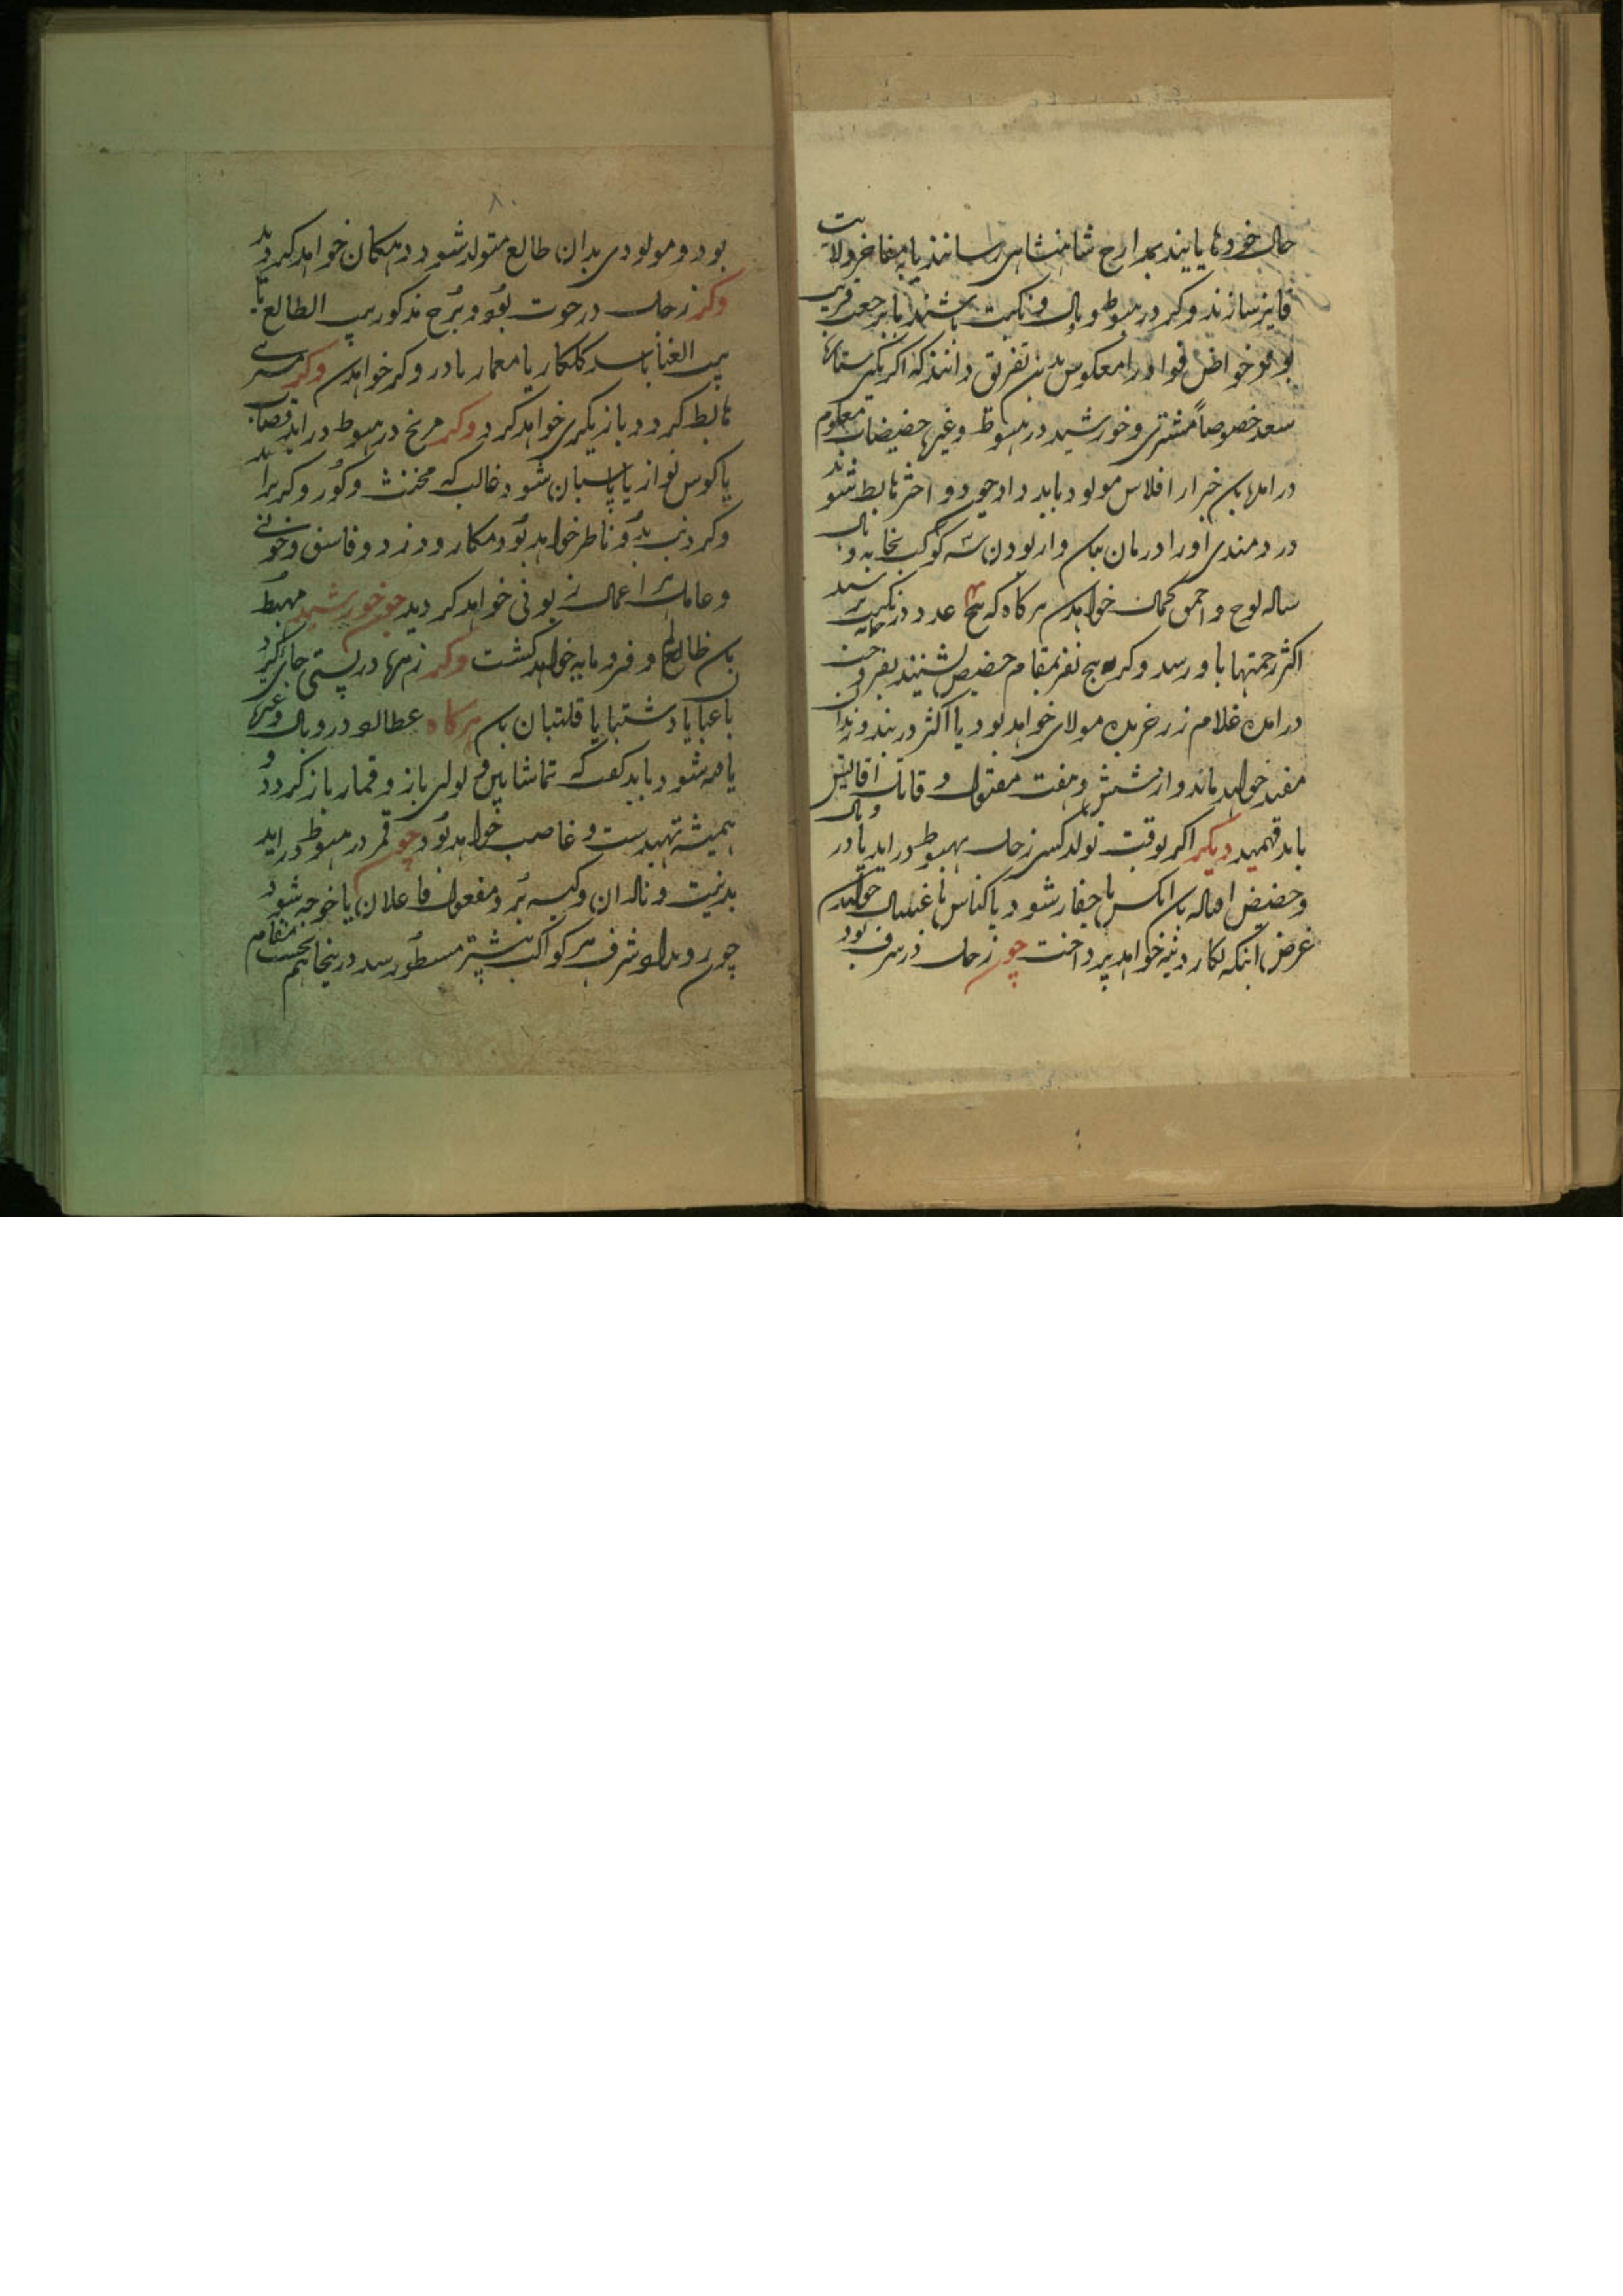 حال خود ها یابند بمدارج شاهنشاهی رسانند یا بمفاخر ولایت
فایز سازند وکر در هبوط و وبال و نکبت باشند یا برجعت قریب
بوند خواص فواد را معکوس بدین تفریق دانند که اکر یکی ستاره
سعد خصوصاً مشتری و خورشید در هبوط وغیرها حضیضات معلوم
در امد بان خبر از افلاس مولود باید داد چون دو اختر هابط شوند
دردمندی او را درمان بان و از بودن سه کوکب بخانه وبال
ساده لوح و احمق کمان خواهد هر کاه که پنج عدد در نکبت
اکثر زحمتها باو رسد وکر پنج نفر بمقام حضیض نشینند بفروخت
در امده غلام زر خریده مولای خواهد بود یا اکثر در بند و زندان
مقید خواهد ماند و از شش و هفت مقتول و قاتل اقالیش
باید فهمید دیکر اکر بوقت تولد کسی زحل بهبوط در اید یا در وبال
و حضیض انکس حفار شود یا کناس یا غسال خواهد
غرض انکه بکار دنیه خواهد پرداخت چون زحل در شرف بود
۸۰
بود و مولودی بدان طالع متولد شود دهکان خواهد کردید
وکر زحل در حوت بود و برج مذکور بیت الطالع یا
بیت الغنا باشد کلکار یا معمار یا درودکر خواهد وکر مشتری
هابط کردد بازیکری خواهد کرد وکر مریخ در هبوط در اید قصاب
یا کوس نواز یا پاسبان شود غالب که مخنث و کور و کر براید
وکر ذنب بدو ناظر خواهد بود مکار و دزد و فاسق و خونی
و عامل اعمال زبونی خواهد کردید چو خورشید مهبط
ظالم و فرومایه خواهد کشت وکر زهره در پستی جای کزید
یا قلتبان هر کاه عطارد در وبال وغیره
یافته شود باید کفت که تماشا بین و لولی باز و قمار باز کردد و
همیشه تهیدست و غاصب خواهد بود چون قمر در هبوط در اید
بدنیت و نادان و کیسه بر و مفعول فاعلان یا خوجه شود
چون رویداد شرف هر کواکب پیشتر مسطور شد در اینجا هم بحسب مقام